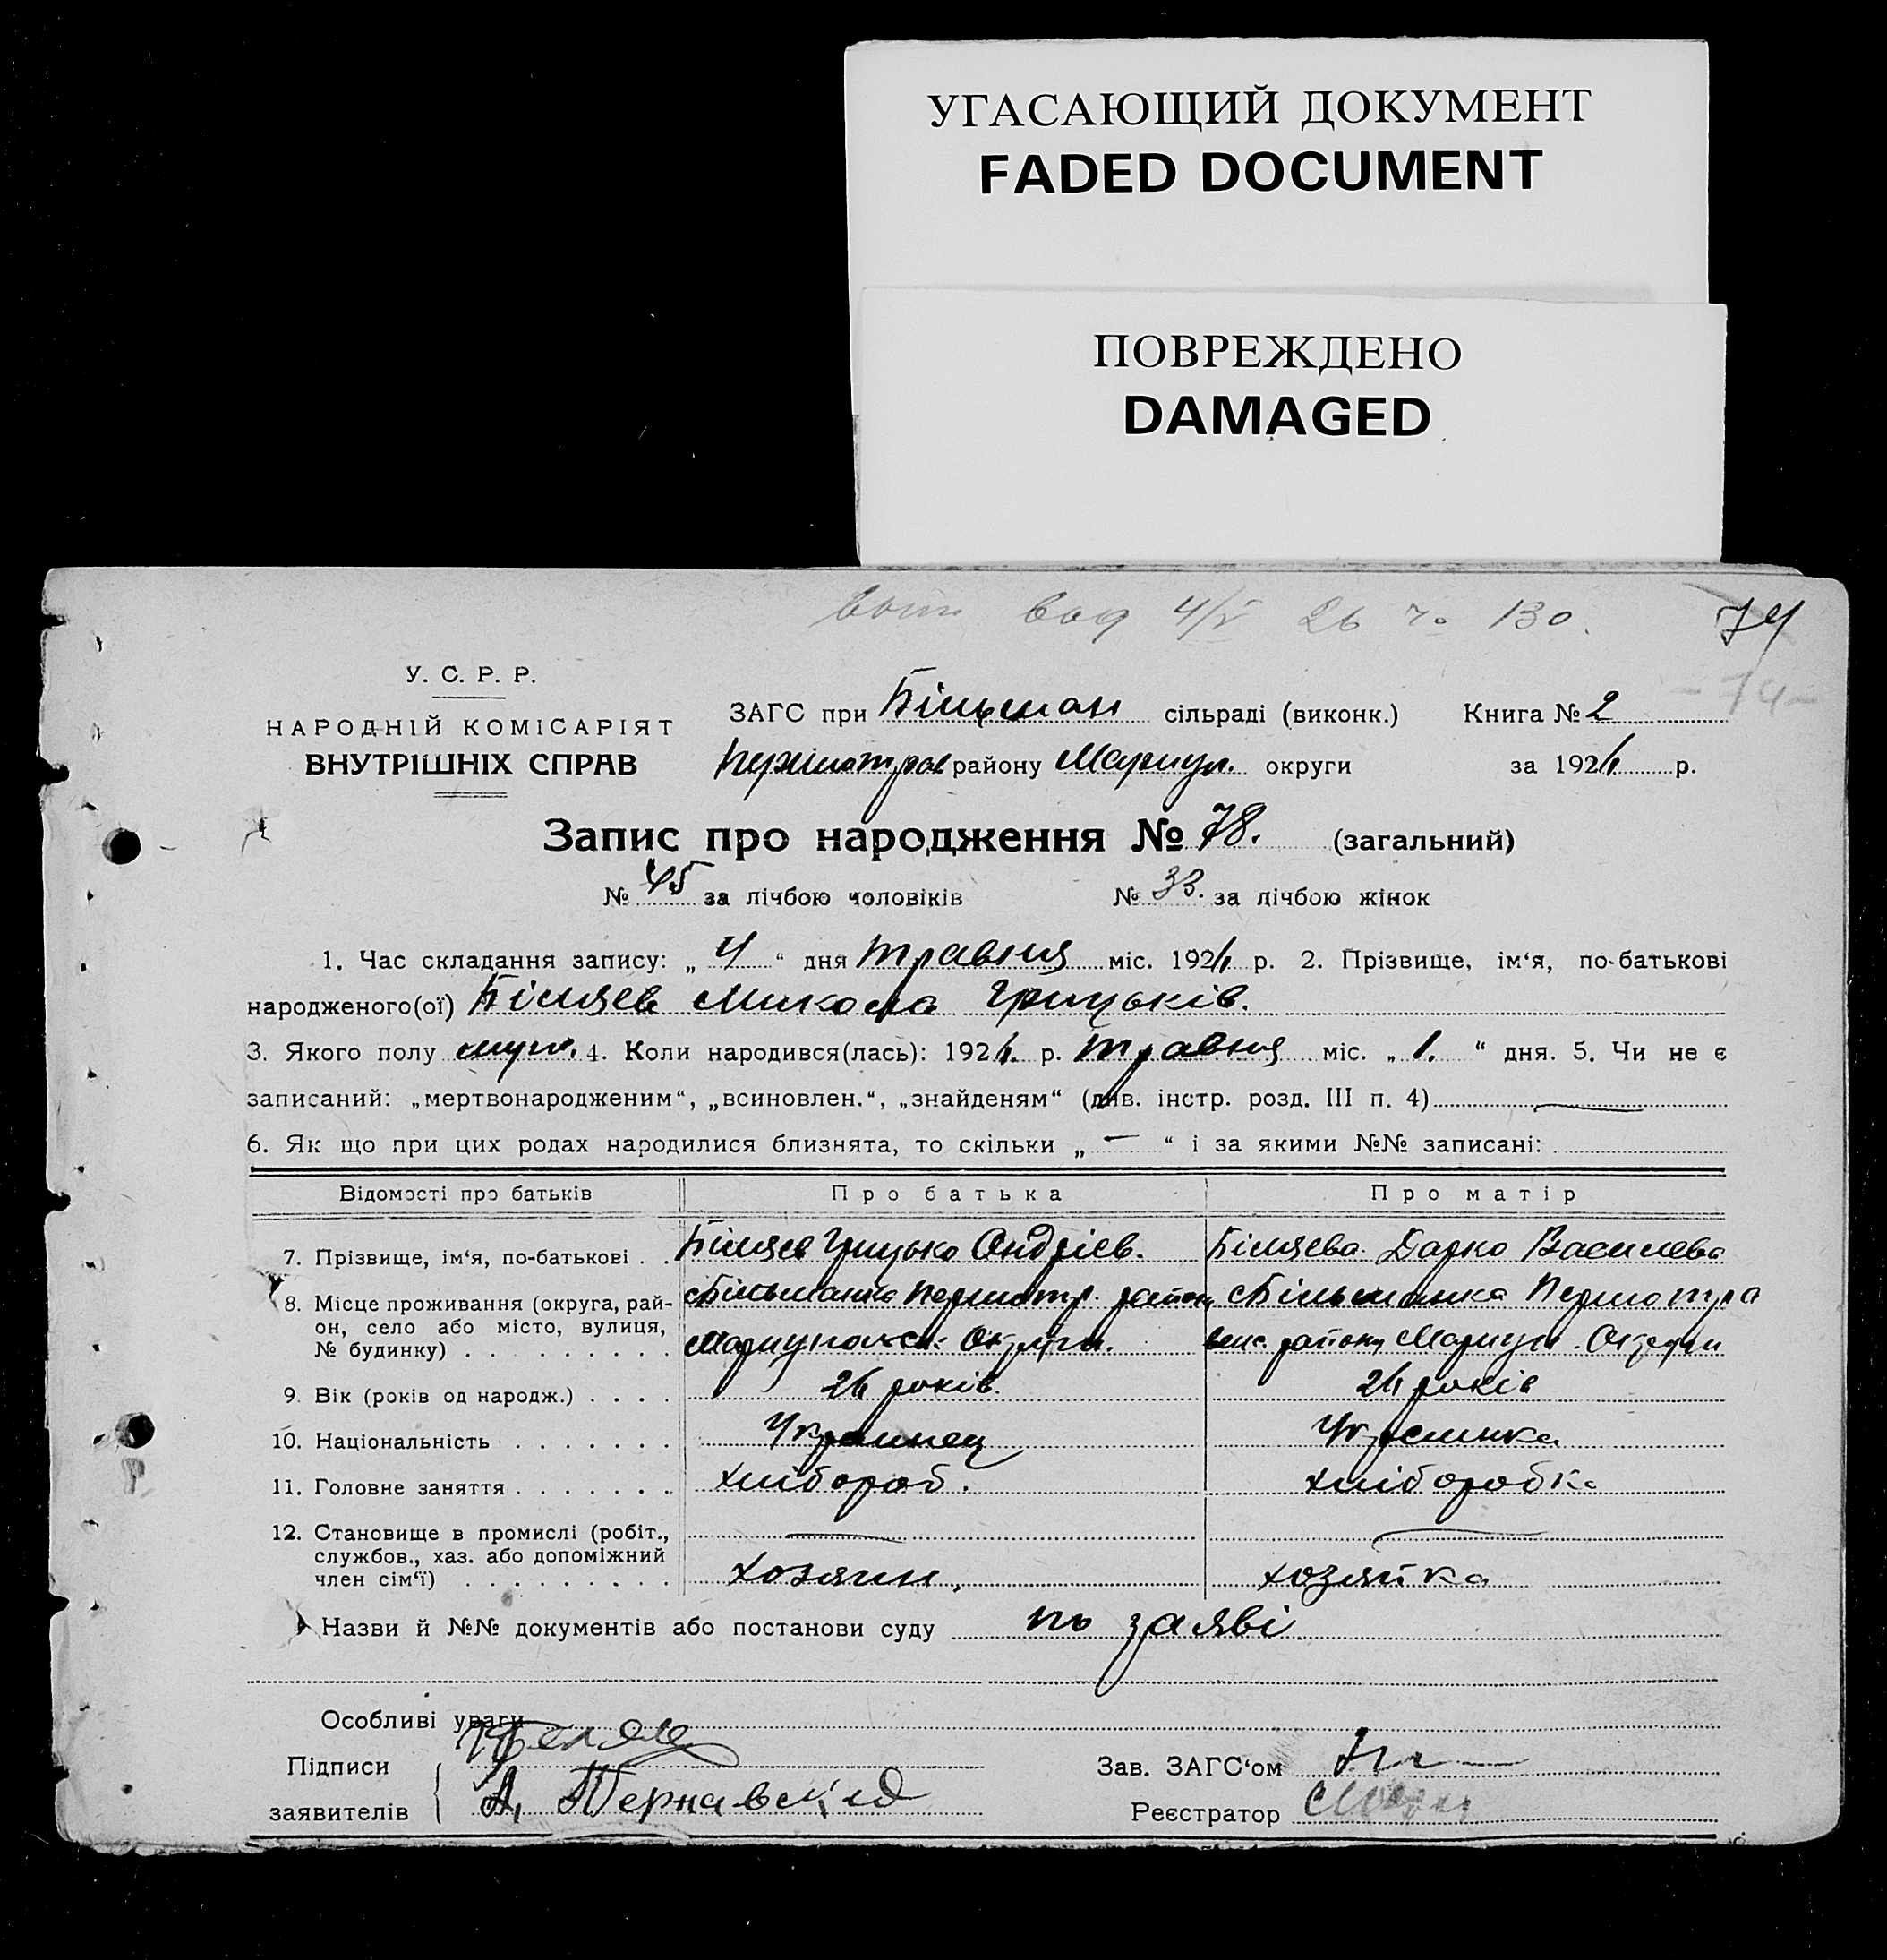 УГАСАЮЩИЙ ДОКУМЕНТ
FADED DOCUMENT
ПОВРЕЖДЕНО
DAMAGED
4/V 26 130.
74
- 74 -
У. С. Р. Р.
НАРОДНІЙ КОМІСАРІЯТ
ВНУТРІШНІХ СПРАВ
ЗАГС при Більман сільраді (виконк.) Книга № 2
району Мариуп. округи за 1926 р.
Запис про народження № 78. (загальний)
№ 45 за лічбою чоловіків № 33. за лічбою жінок
1. Час складання запису: „ 4 “ дня травня міс. 1926 р. 2. Прізвище, ім‘я, по-батькові
народженого(ої) Біляєв Микола Грицьків.
3. Якого полу муж. 4. Коли народився(лась): 1926. р. травня міс. „ 1. “ дня. 5. Чи не є
записаний: „мертвонародженим“, „всиновлен.“, „знайденям“ (див. інстр. розд. III п. 4)
6. Як що при цих родах народилися близнята, то скільки „ — “ і за якими №№ записані:
Відомості про батьків Про батька Про матір
7. Прізвище, ім‘я, по-батькові . . Біляєв Грицько Андріев. Біляєва Дарко Василева
8. Місце проживання (округа, рай- с Більманка Першотр. району с Більманка Першотра
он, село або місто, вулиця,
№ будинку) . . . . . . . . . Мариупольск. Округи. венс. району Мариуп. Округи
9. Вік (років од народж.) . . . . 26 років. 26 років
10. Національність . . . . . . . Украинец Украинка
11. Головне заняття . . . . . . . хлібороб. хліборобка
12. Становище в промислі (робіт.,
службов., хаз. або допоміжний
член сім‘ї) . . . . . . . . . хозяин. хозяйка
Назви й №№ документів або постанови суду по заяві
Особливі уваги
Підписи
Зав. ЗАГС‘ом
заявителів
Реєстратор